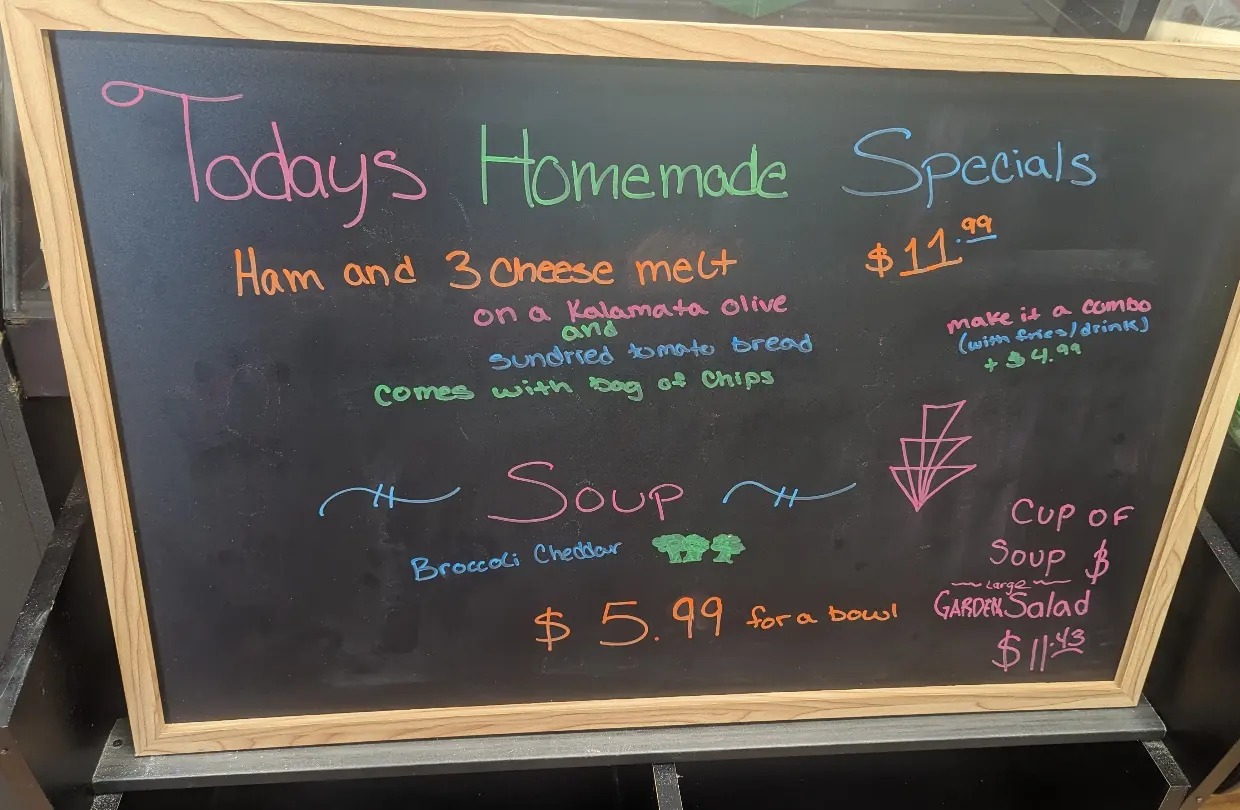 Todays Homemade Specials
Ham and 3 cheese melt $11.99
on a Kalamata olive
and
sundried tomato bread
comes with bag of chips
make it a combo
(with fries/drink)
+ $4.99
Soup
Broccoli Cheddar
$ 5.99 for a bowl
Cup of
Soup $
Large
GARDEN Salad
$11.43